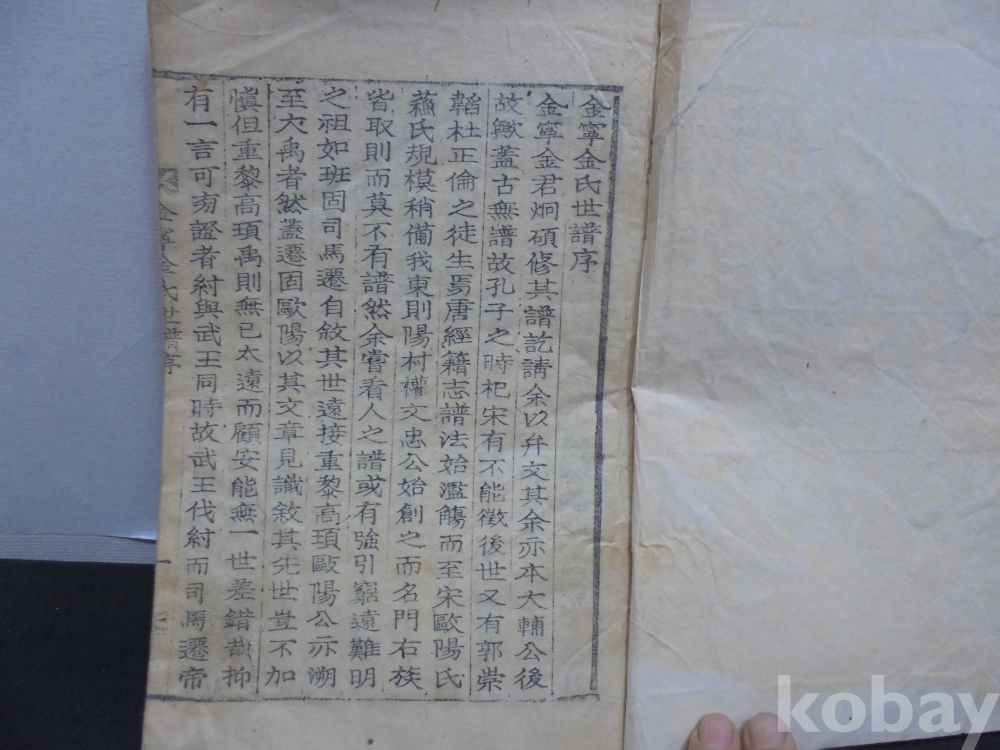 金寧金氏世譜序
金寧金君炯碩修其譜訖請余以弁文其余亦本大輔公後
故歟蓋古無譜故孔子之時杞宋有不能徵後世又有郭崇
韜杜正倫之徒生焉唐經籍志譜法始濫觴而至宋歐陽氏
蘓氏規模稍備我東則陽村權文忠公始創之而名門右族
皆取則而莫不有譜然余嘗看人之譜或有强引窮遠難明
之祖如班固司馬遷自敘其世遠接重黎高頊歐陽公亦溯
至大禹者然蓋遷固歐陽以其文章見識敘其先世豈不加
愼但重黎高頊禹則無已太遠而顧安能無一世差錯哉抑
有一言可旁證者紂與武王同時故武王伐紂而司馬遷帝
金寧金氏世譜序
一
kobay